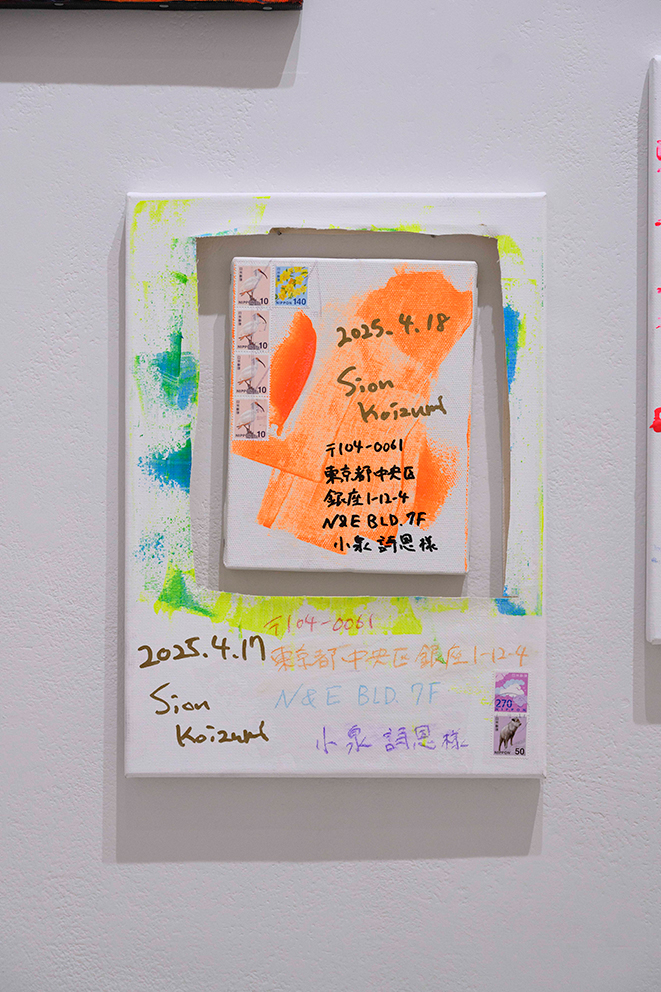 10
NIPPON 140
10
10
10
2025.4.18
Sion
Koizumi
〒104-0061
東京都中央区
銀座1-12-4
N&E BLD. 7F
小泉 詩恩 様
2025.4.17
Sion
Koizumi
〒104-0061
東京都中央区銀座1-12-4
N&E BLD. 7F
小泉 詩恩 様
270
NIPPON 50